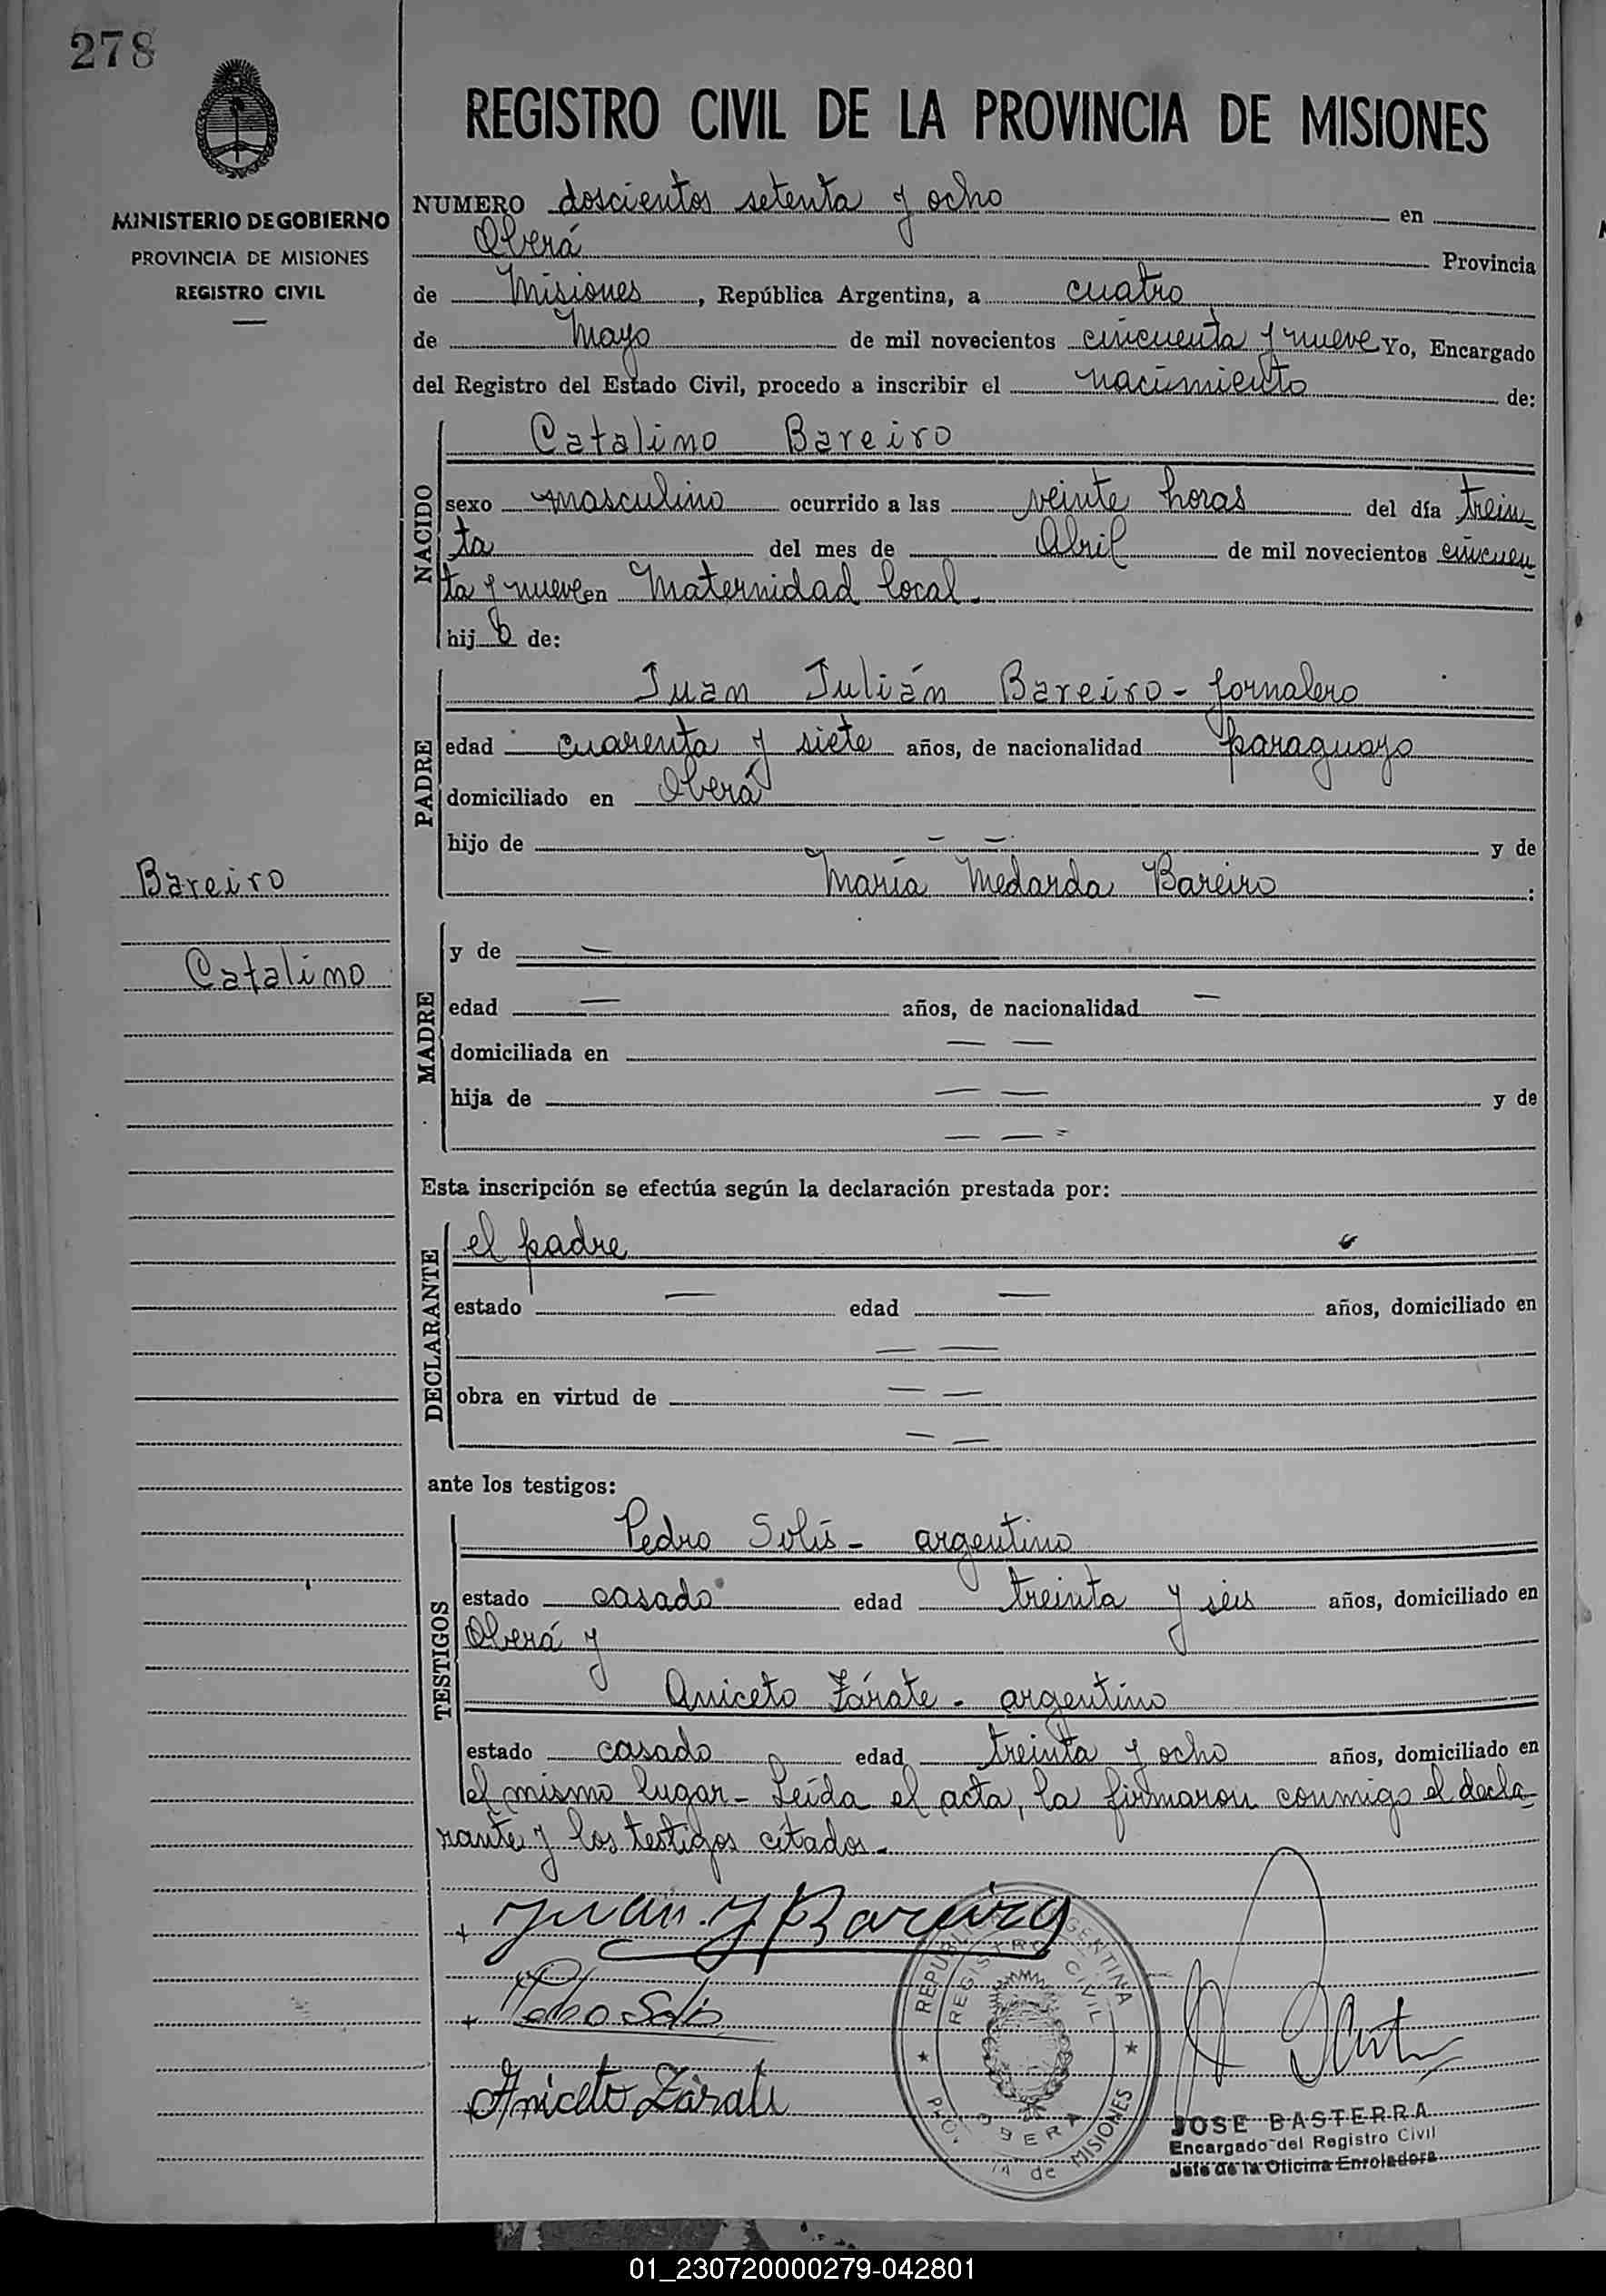 278
MINISTERIO DE GOBIERNO
PROVINCIA DE MISIONES
REGISTRO CIVIL
REGISTRO CIVIL DE LA PROVINCIA DE MISIONES
NUMERO doscientos setenta y ocho en
Oberá Provincia
de Misiones, República Argentina, a cuatro
de Mayo de mil novecientos cincuenta y nueve Yo, Encargado
del Registro del Estado Civil, procedo a inscribir el nacimiento de:
NACIDO
Catalino Bareiro
sexo masculino ocurrido a las veinte horas del día trein-
ta del mes de Abril de mil novecientos cincuen
ta y nueve en Maternidad local.
hijo de:
PADRE
Juan Julián Bareiro - jornalero
edad cuarenta y siete años, de nacionalidad paraguayo
domiciliado en Oberá
hijo de — — y de
María Medarda Bareiro :
Bareiro
Catalino
MADRE
y de —
edad — años, de nacionalidad —
domiciliada en — —
hija de — — y de
— — =
Esta inscripción se efectúa según la declaración prestada por:
DECLARANTE
el padre
estado — edad — años, domiciliado en
— —
obra en virtud de — —
— —
ante los testigos:
TESTIGOS
Pedro Solís - argentino
estado casado edad treinta y seis años, domiciliado en
Oberá y
Aniceto Zárate - argentino
estado casado edad treinta y ocho años, domiciliado en
el mismo lugar - Leída el acta, la firmaron conmigo el decla-
rante y los testigos citados.-
+ Juan J Bareiro
+ Pedro Solis
Aniceto Zárate
REPUBLICA ARGENTINA
REGISTRO CIVIL
OBERA
PROV. de MISIONES
JOSE BASTERRA
Encargado del Registro Civil
Jefe de la Oficina Enroladora
01_230720000279-042801